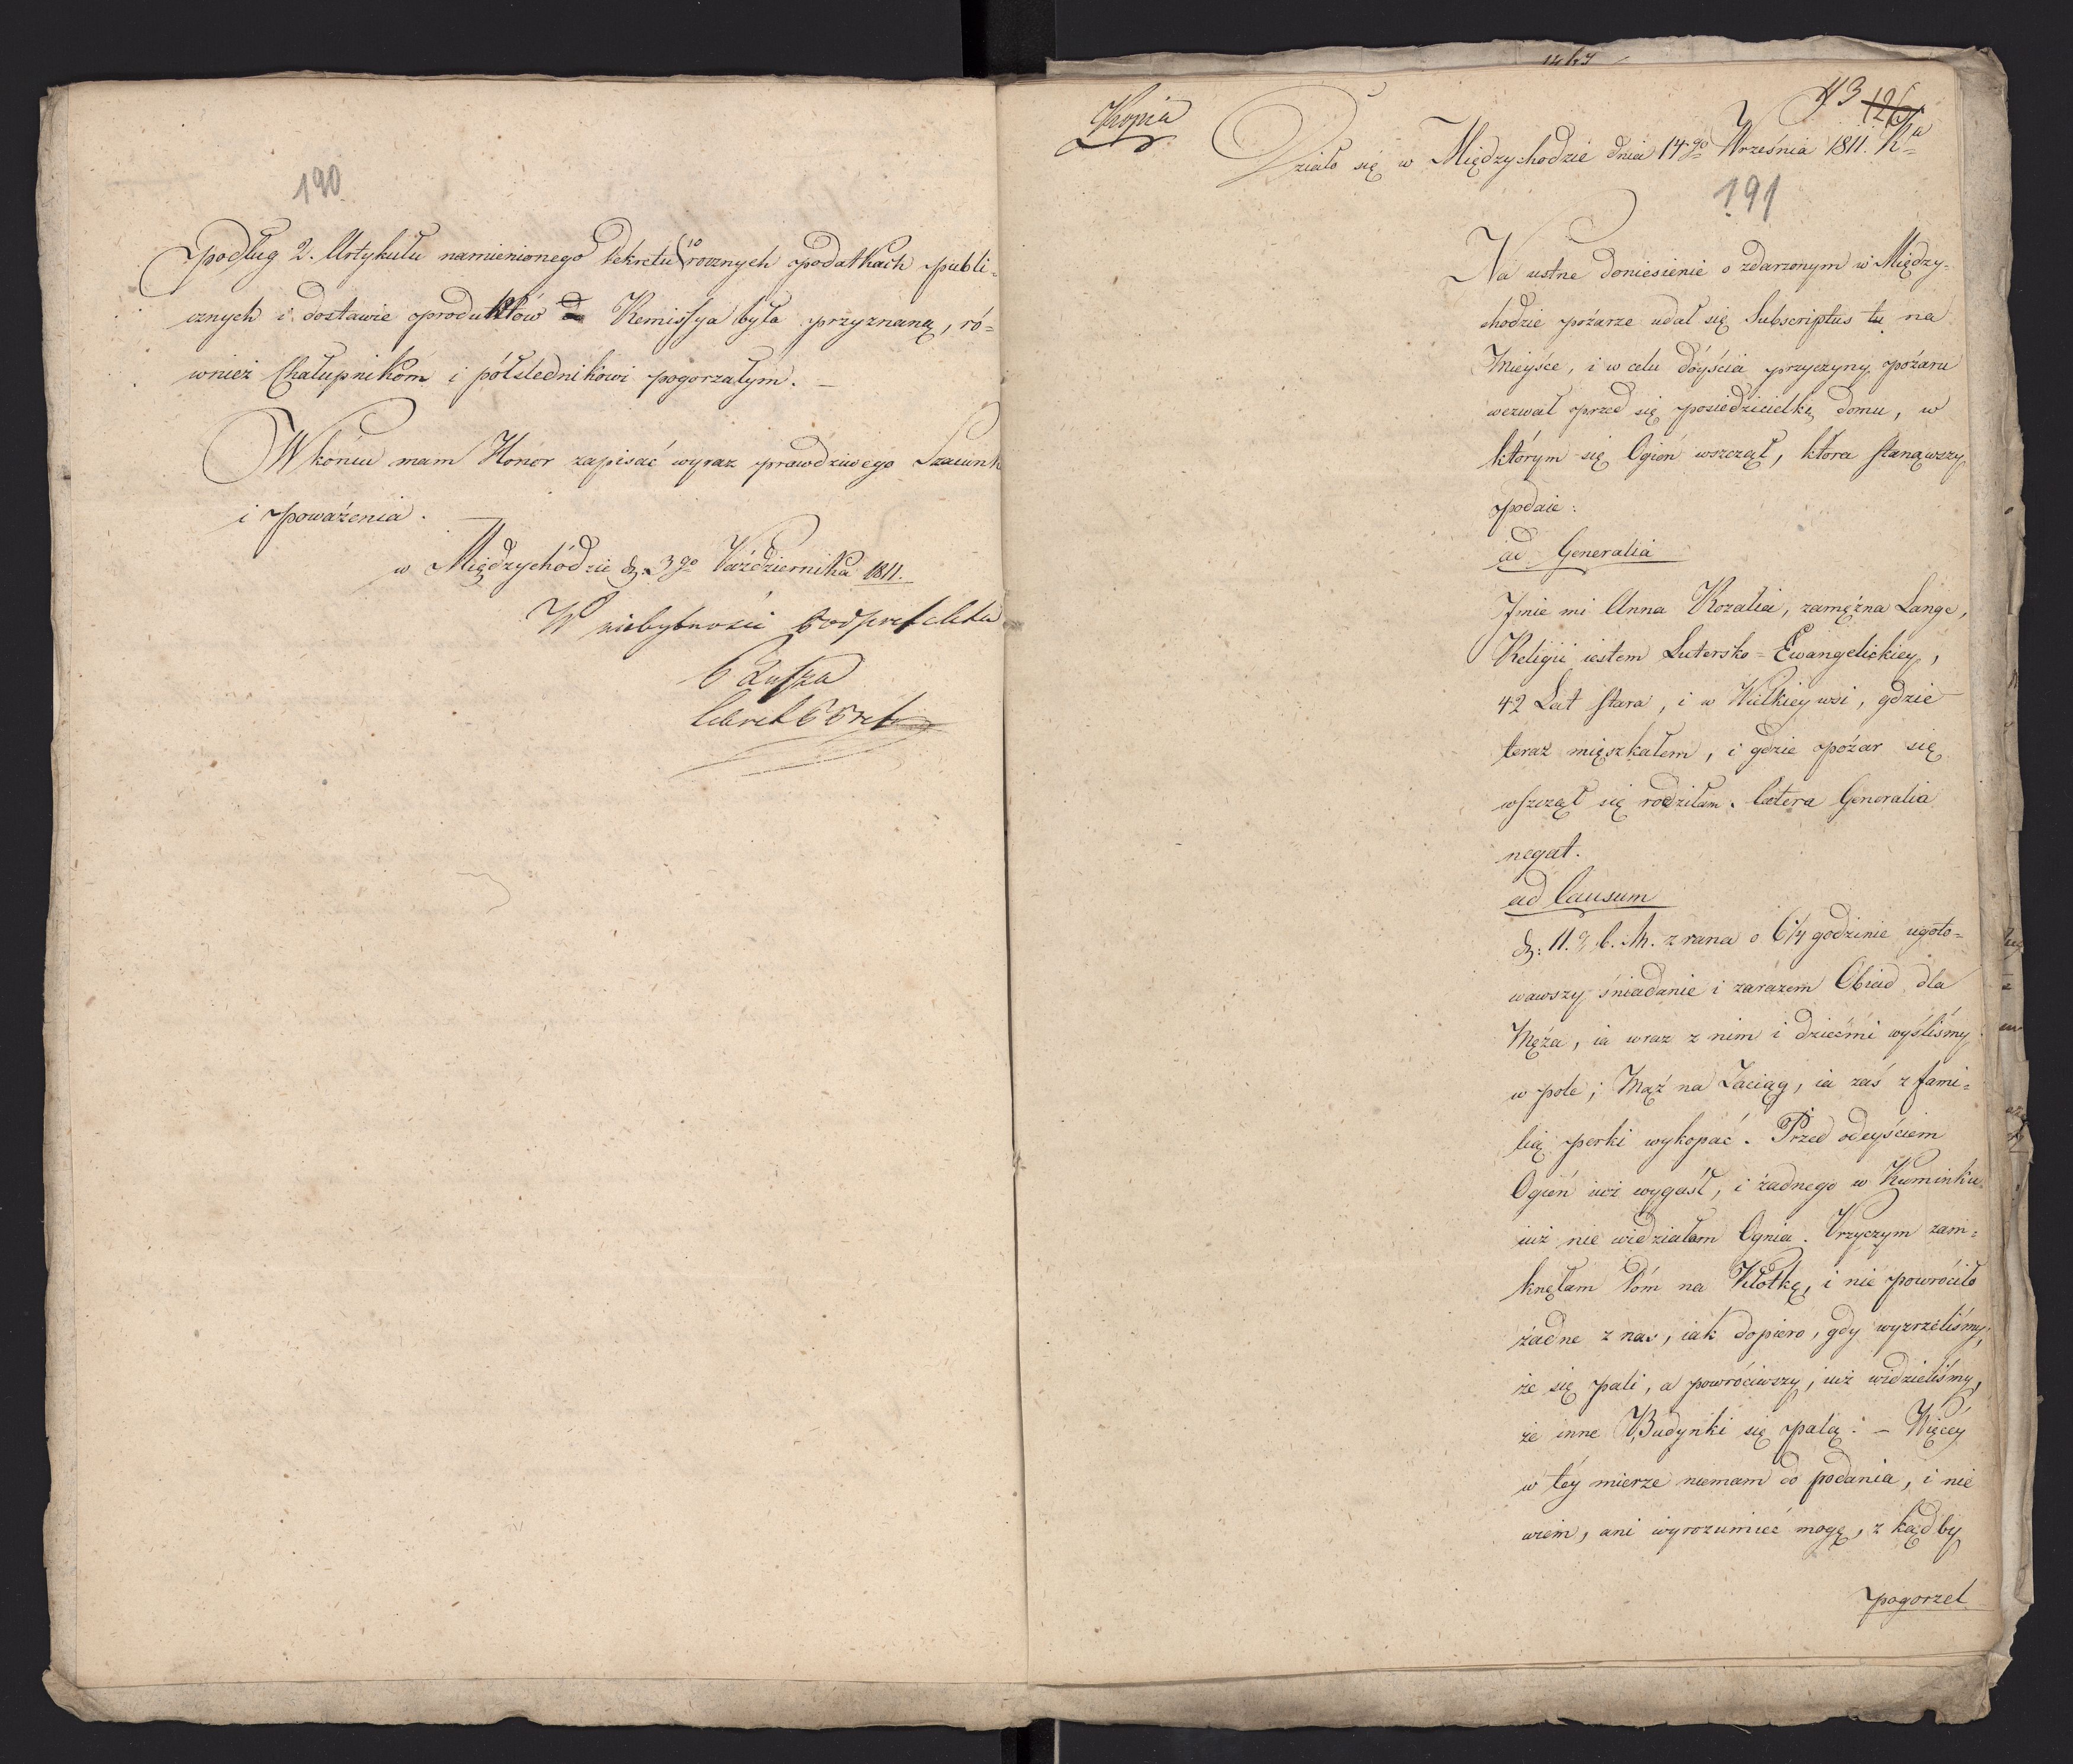 190
podług 2. Artykułu namienionego Dekretu 10 rocznych podatkach publi-
cznych i dostawie produktów Remissya była przyznaną, ró-
wnież Chałupnikóm i półslednikowi pogorzałym. –
W końcu mam Honor zapisać wyraz prawdziwego Szacunk
i poważenia. –
w Międzychódzie d. 3go Października 1811.
W niebytności Podprefekta

Kopia
43 126
Działo się w Międzychodzie dnia 14go Września 1811. Ra
191
Na ustne doniesienie o zdarzonym w Między-
chodzie pożarze udał się Subscriptus tu na
Mieyśce, i w celu dóyścia przyczyny pożaru
wezwał przed się posiedzicielkę domu, w
którym się Ogień wszczął, która stanąwszy
podaie:
ad Generalia
Jmie mi Anna Rozalia, zamężna Lange,
Religii iestem Lutersko-Ewangelickiey,
42 Lat stara, i w Wielkiey wsi, gdzie
teraz mięszkałem, i gdzie pożar się
wszczął się rodziłam. Cætera Generalia
negat.
ad Causum
d. 11. c. M. z rana o 6 1/4 godzinie ugoto-
wawszy śniadanie i zarazem Obiad dla
Męża, ia wraz z nim i dziećmi wyśliśmy
w pole; Mąż na Zaciąg, ia zaś z fami-
lią perki wykopać. Przed odeyściem
Ogień iuż wygasł, i żadnego w Kuminku
iuż nie widziałam Ognia. Przyczym zam-
knęłam Dóm na Kłotkę, i nie powróciło
żadne z nas, iak dopiero, gdy wyzrzeliśmy,
że się pali, a powróciwszy, iuż widzieliśmy,
że inne Budynki się palą. – Więcéy
w téy mierze niemam do podania, i nie
wiem, ani wyrozumieć mogę, z kądby
pogorzel